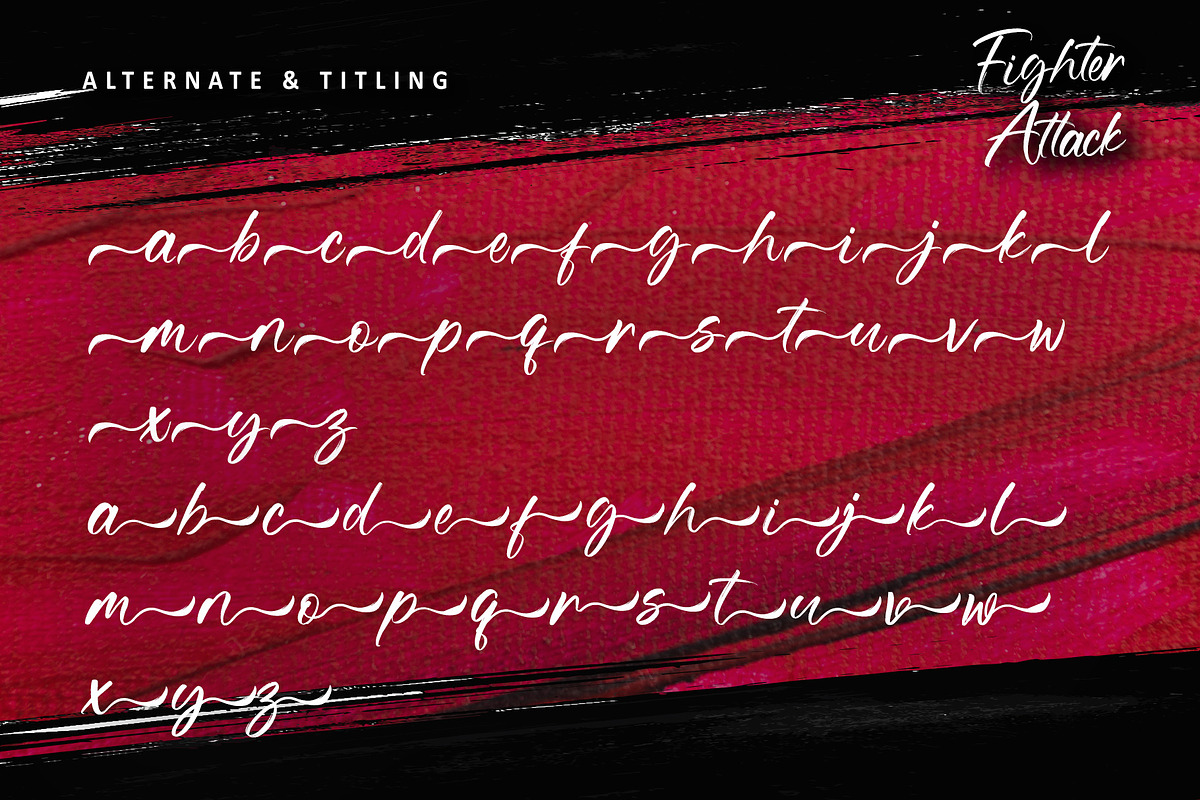 ALTERNATE & TITLING
Fighter
Attack
a b c d e f g h i j k l
m n o p q r s t u v w
x y z
a b c d e f g h i j k l
m n o p q r s t u v w
x y z